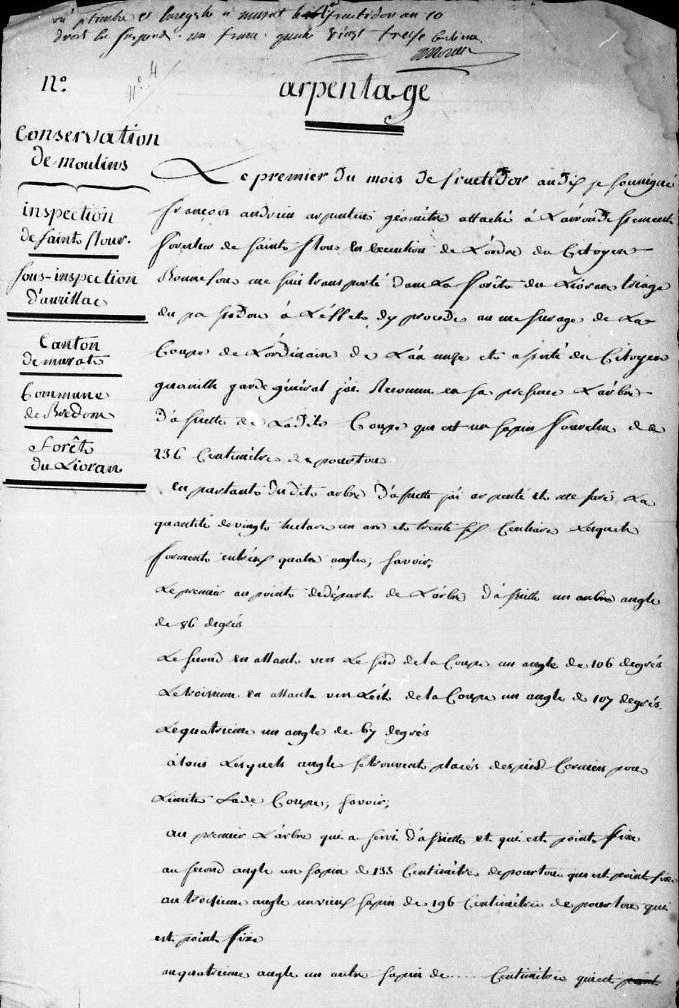 vu p. timbre et Enregistré à murat le fructidor an 10
droit la suspend. un franc quatre vingt treize
arpentage
N°.
n° 4
Conservation
de moulins
inspection
de saint flour.
sous-inspection
d'aurillac
Canton
de murat
Commune
de Bredom
forêt
du Lioran
Le premier du mois de fructidor an dix je soussigné
françois andrieu arpenteur géomètre attaché à L'arrondissement
forestier de saint flour en execution de L'ordre du Citoyen
Bonnefon me suis transporté dans La forêt du Lioran triage
du pa à L'effet dy proceder au mesurage de La
Coupe de L'ordinaire de L'an onze et assisté du Citoyen
garde général j'ai Reconnu en sa presence L'arbre
d'assiette de Ladite Coupe qui est un sapin de
236 Centimètre de pourtour
en partant dudit arbre d'assiette j'ai arpenté et mesuré La
quantité de vingt hectare un are et trente six Centiare Lesquels
forment entréux quatre angle, savoir,
Le premier au point de départ de L'arbre d'assiette un arbre angle
de 86 degrés
Le second en allant vers Le sud de la Coupe un angle de 106 degrés
Le troisieme en allant vers L'ést de la Coupe un angle de 107 degrés.
Le quatrieme un angle de 67 degrés
à tous Lesquels angle se trouvent placés des pied Corniers pour
Limite Lade Coupe, savoir,
au premier L'arbre qui a servi d'assiette et qui est point fixe
au second angle un sapin de 133 Centimètre de pourtour qui est point fixe
au troisieme angle un vieux sapin de 196 Centimètre de pourtour qui
est point fixe
au quatrieme angle un autre sapin de .... Centimètre qui est point